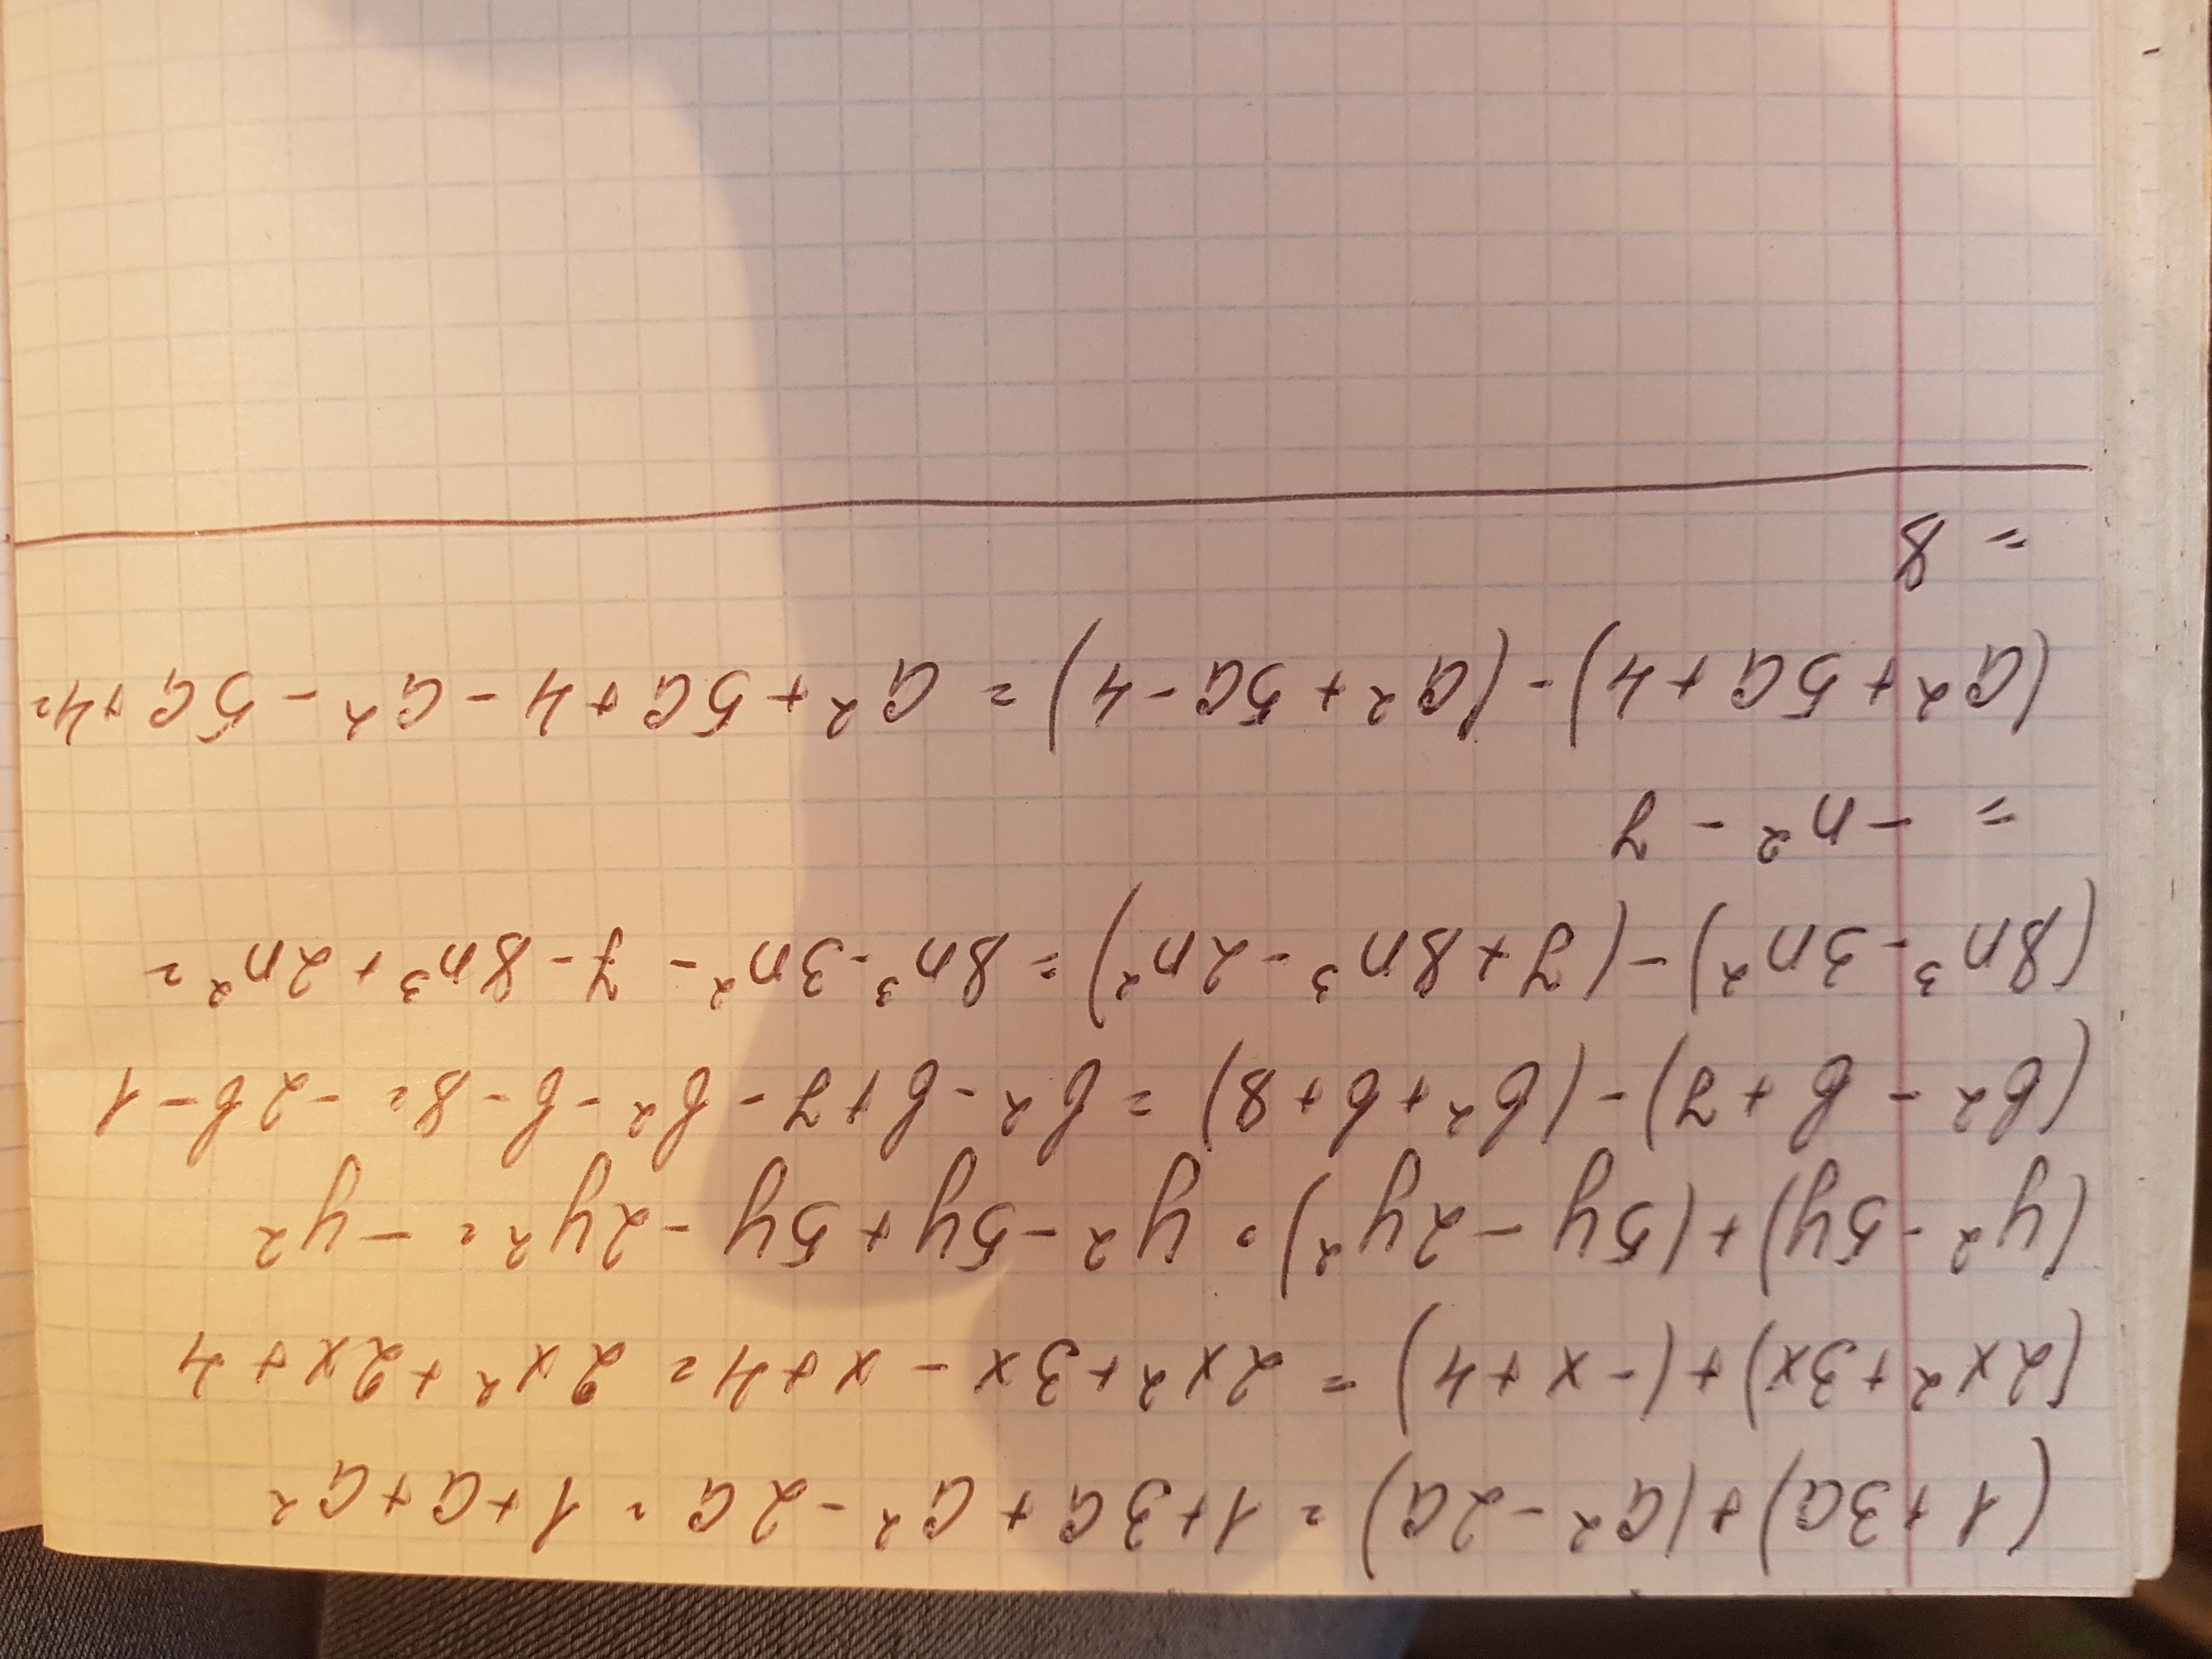 (1+3a)+(a²-2a)=1+3a+a²-2a=1+a+a²
(2x²+3x)+(-x+4)=2x²+3x-x+4=2x²+2x+4
(y²-5y)+(5y-2y²)=y²-5y+5y-2y²=-y²
(b²-b+7)-(b²+b+8)=b²-b+7-b²-b-8=-2b-1
(8n³-3n²)-(7+8n³-2n²)=8n³-3n²-7-8n³+2n²=
=-n²-7
(a²+5a+4)-(a²+5a-4)=a²+5a+4-a²-5a+4=
=8